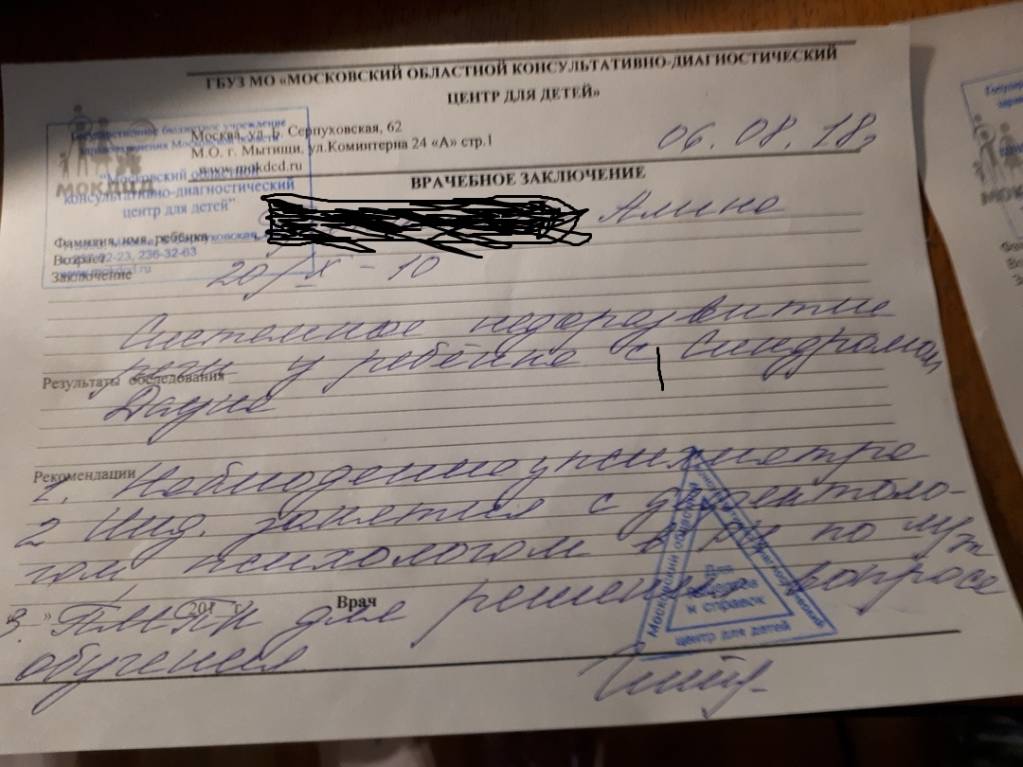 ГБУЗ МО «МОСКОВСКИЙ ОБЛАСТНОЙ КОНСУЛЬТАТИВНО-ДИАГНОСТИЧЕСКИЙ
ЦЕНТР ДЛЯ ДЕТЕЙ»
Москва, ул. Б. Серпуховская, 62
М.О. г. Мытищи, ул.Коминтерна 24 «А» стр.1
www.mokdcd.ru
06.08.18г
Государственное бюджетное учреждение
здравоохранения Московской области
"Московский областной
консультативно-диагностический
центр для детей"
236-32-63
www.mokdcd.ru
мокдцд
ВРАЧЕБНОЕ ЗАКЛЮЧЕНИЕ
Фамилия, имя, ребёнка
Алина
Возраст
Заключение
20/IX-10
Системное недоразвитие
речи у ребёнка с Синдромом
Результаты обследования
Дауна
Рекомендации
1. Наблюдение у психиатра
2 Инд. занятия с дефектоло-
гом психологом по м/ж
" " 201 г. Врач
3. ПМПК для решения вопроса
обучения
Московский областной
и справок
центр для детей